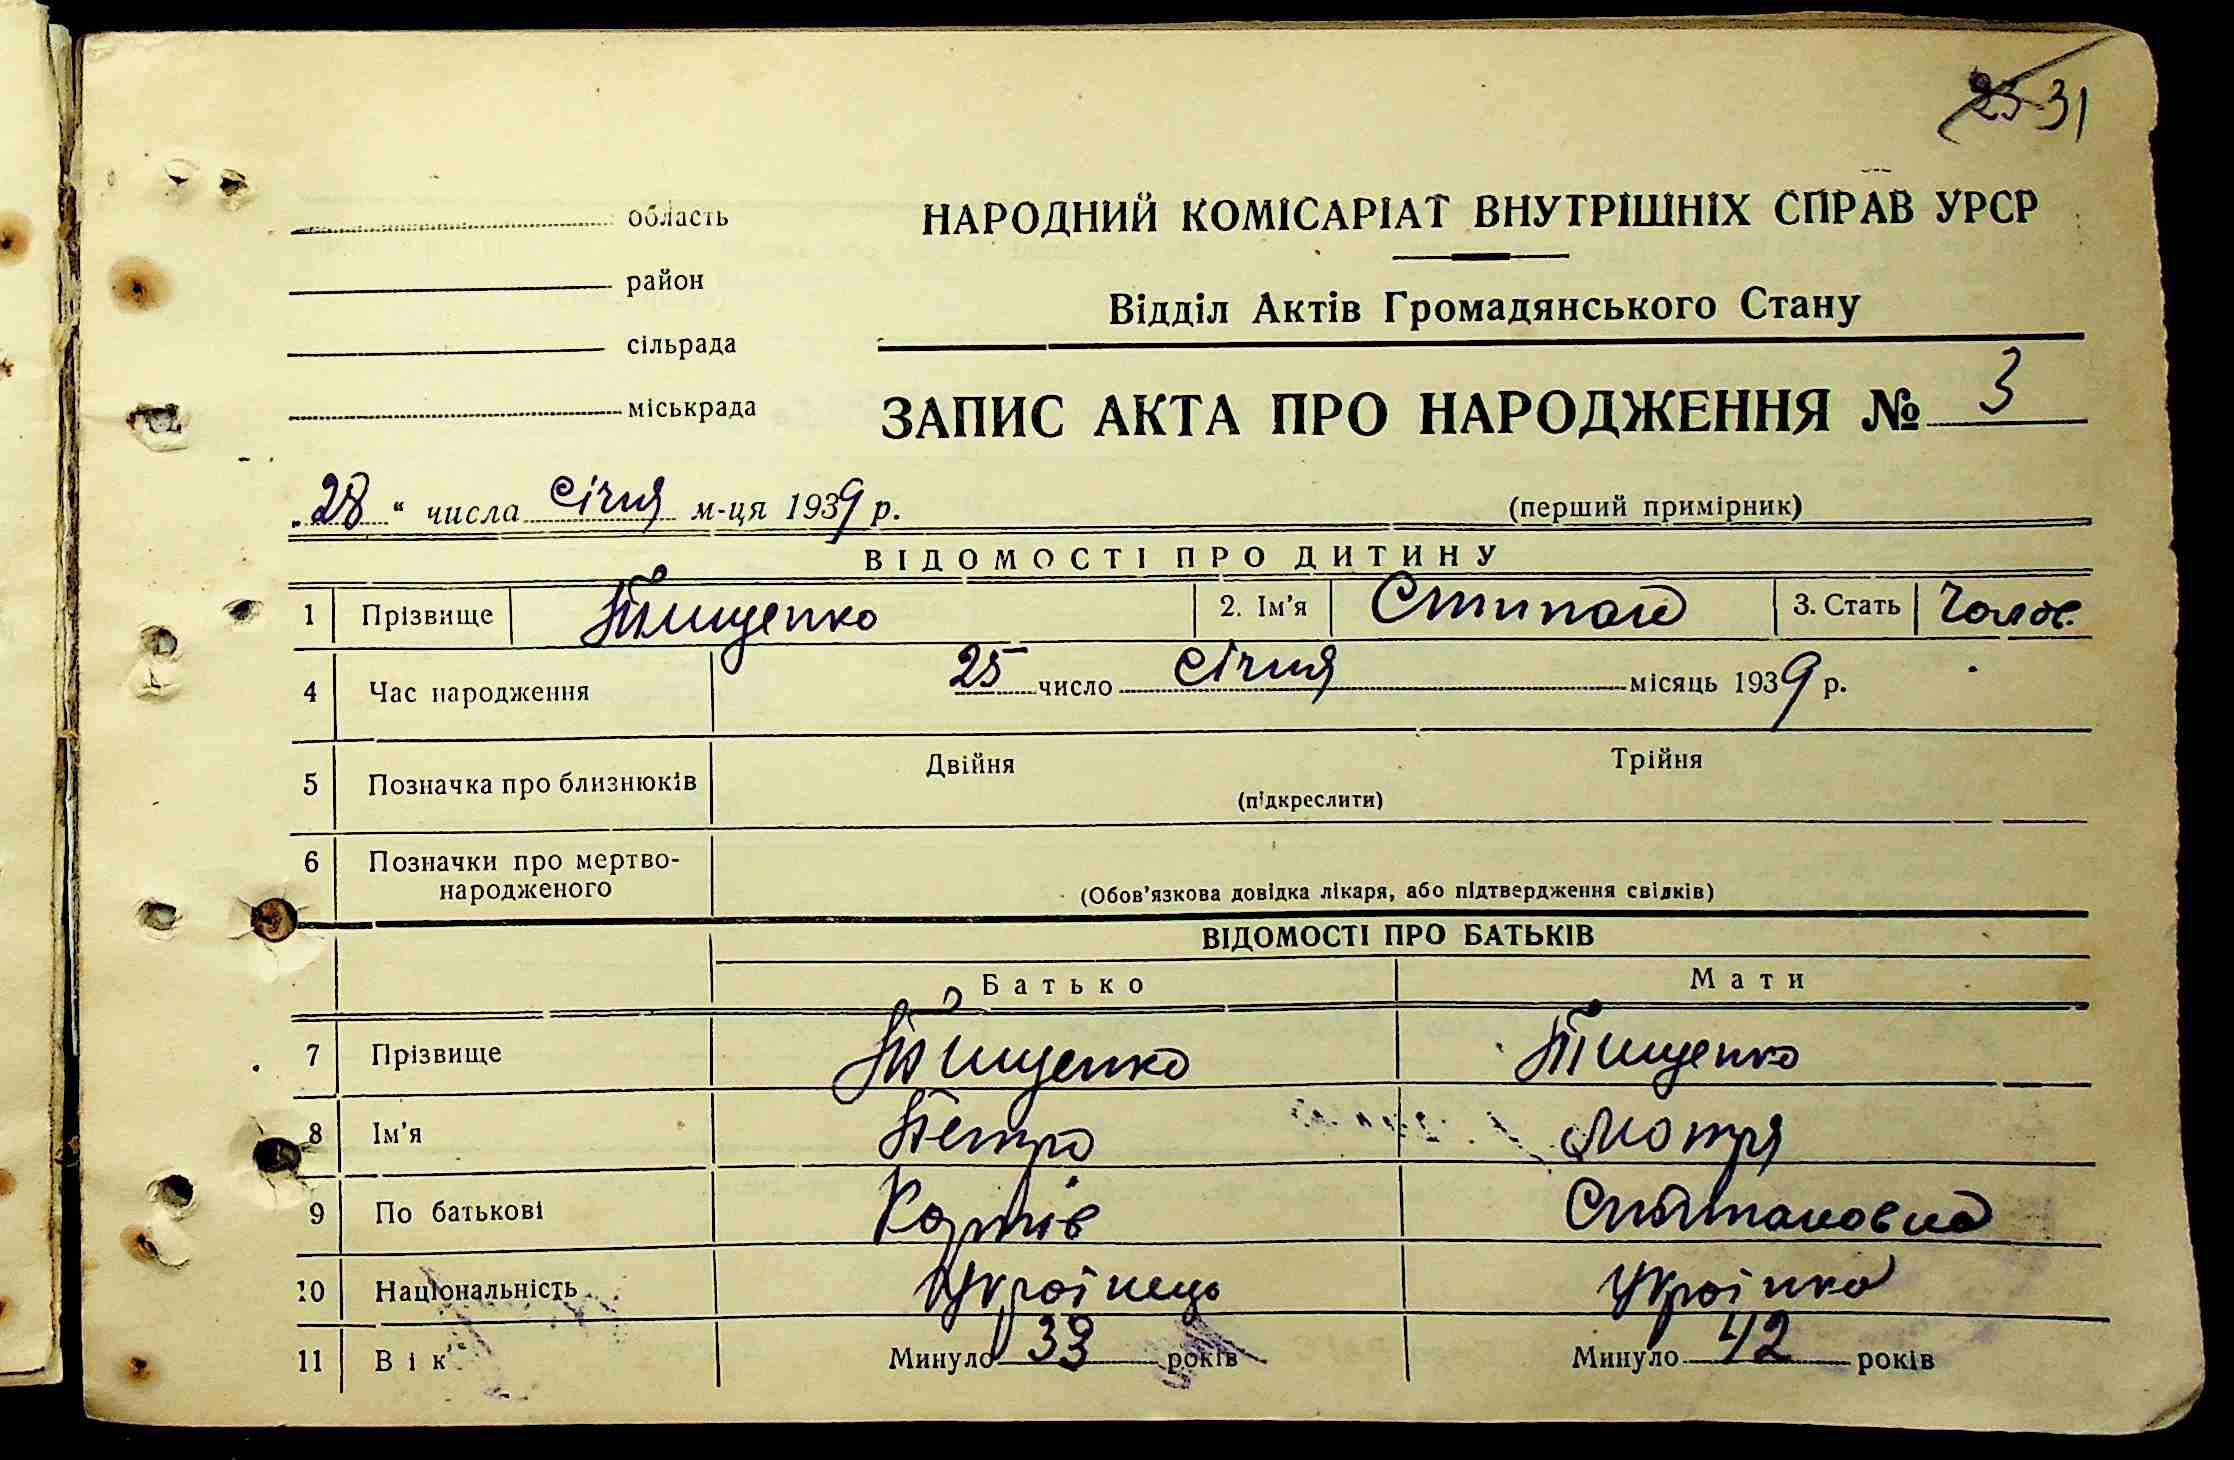 25 31
область
район
сільрада
міськрада
НАРОДНИЙ КОМІСАРІАТ ВНУТРІШНІХ СПРАВ УРСР
Відділ Актів Громадянського Стану
ЗАПИС АКТА ПРО НАРОДЖЕННЯ № 3
„28“ числа січня м-ця 1939 р. (перший примірник)
ВІДОМОСТІ ПРО ДИТИНУ
1 Прізвище Тищенко 2. Ім'я Стипан 3. Стать Чолов.
4 Час народження 25 число січня місяць 1939 р.
5 Позначка про близнюків Двійня Трійня
(підкреслити)
6 Позначки про мертво-
народженого
(Обов'язкова довідка лікаря, або підтвердження свідків)
ВІДОМОСТІ ПРО БАТЬКІВ
Батько Мати
7 Прізвище Тищенко Тищенко
8 Ім'я Петро Мотря
9 По батькові
10 Національність Українець Українка
11 Вік Минуло 33 років Минуло 42 років